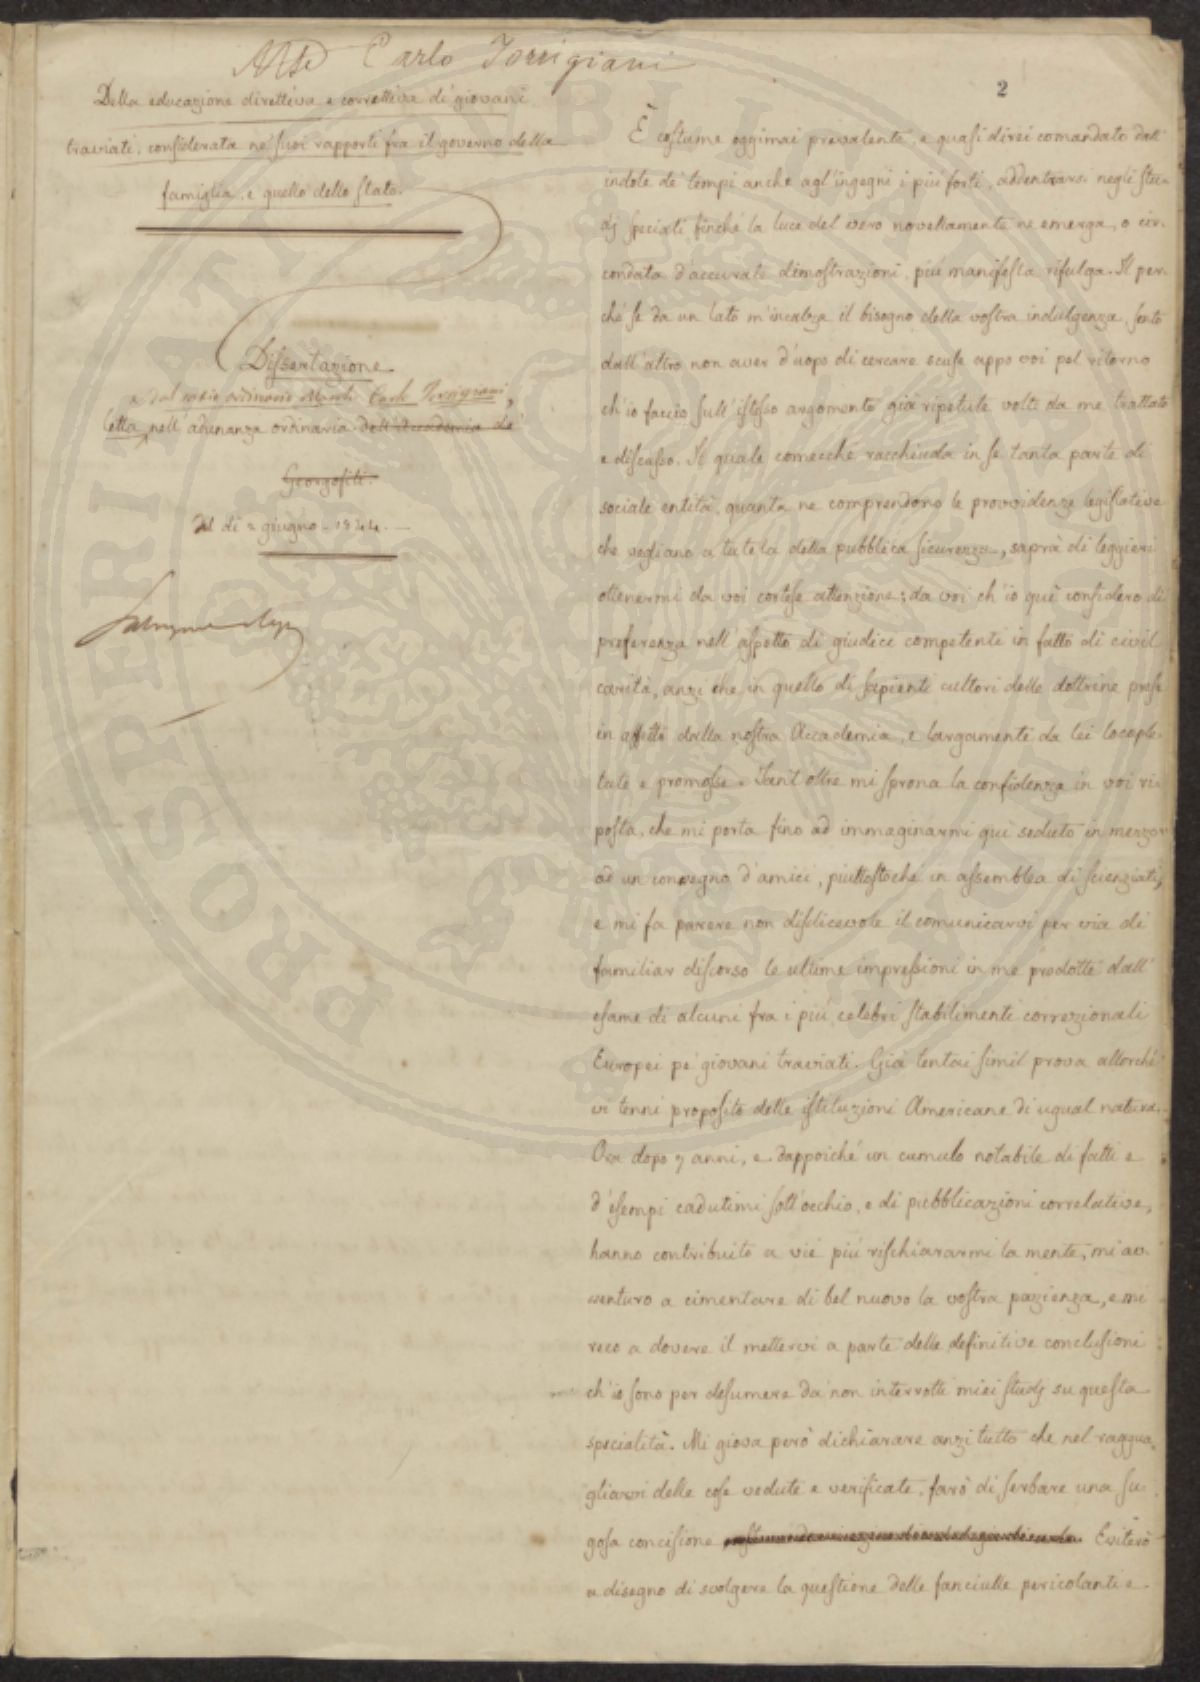 Mse Carlo Torrigiani
2
Della educazione direttiva e correttiva di giovani
traviati, considerata ne' suoi rapporti fra il governo della
famiglia, e quello dello Stato.
Dissertazione
dal socio ordinario March. Carlo Torrigiani,
letta nell'adunanza ordinaria dell'Accademia de'
Georgofili.
del dì 2 giugno 1844.
È costume oggimai prevalente, e quasi direi comandato dall'
indole de' tempi anche agl'ingegni i più forti, addentrarsi negli stu-
dj speciali finchè la luce del vero novellamente ne emerga, o cir-
condata d'accurate dimostrazioni, più manifesta rifulga. Il per-
chè se da un lato m'incalza il bisogno della vostra indulgenza, sento
dall'altro non aver d'uopo di cercare scuse appo voi pel ritorno
ch'io faccio sull'istesso argomento già ripetute volte da me trattato
e discusso. Il quale comecchè racchiuda in se tanta parte di
sociale entità, quanta ne comprendono le provvidenze legislative
che vegliano a tutela della pubblica sicurezza, saprà di leggieri
ottenermi da voi cortese attenzione; da voi ch'io quì considero di
preferenza nell'aspetto di giudici competenti in fatto di civil
carità, anzi che in quello di sapienti cultori delle dottrine prese
in affetto dalla nostra Accademia, e largamente da lei locuple-
tate e promosse. Tant'oltre mi sprona la confidenza in voi ri-
posta, che mi porta fino ad immaginarmi quì seduto in mezzo
ad un convegno d'amici, piuttostochè in assemblea di scienziati,
e mi fa parere non disdicevole il comunicarvi per via di
familiar discorso le ultime impressioni in me prodotte dall'
esame di alcuni fra i più celebri stabilimenti correzionali
Europei pe' giovani traviati. Già tentai simil prova allorchè
vi tenni proposito delle istituzioni Americane di ugual natura.
Ora dopo 7 anni, e dappoichè un cumulo notabile di fatti e
d'esempi cadutimi sott'occhio, e di pubblicazioni correlative,
hanno contribuito a vie più rischiararmi la mente, mi av-
venturo a cimentare di bel nuovo la vostra pazienza, e mi
reco a dovere il mettervi a parte delle definitive conclusioni
ch'io sono per desumere da' non interrotti miei studj su questa
specialità. Mi giova però dichiarare anzi tutto che nel raggua-
gliarvi delle cose vedute e verificate, farò di serbare una su-
gosa concisione. Eviterò
a disegno di svolgere la questione delle fanciulle pericolanti e